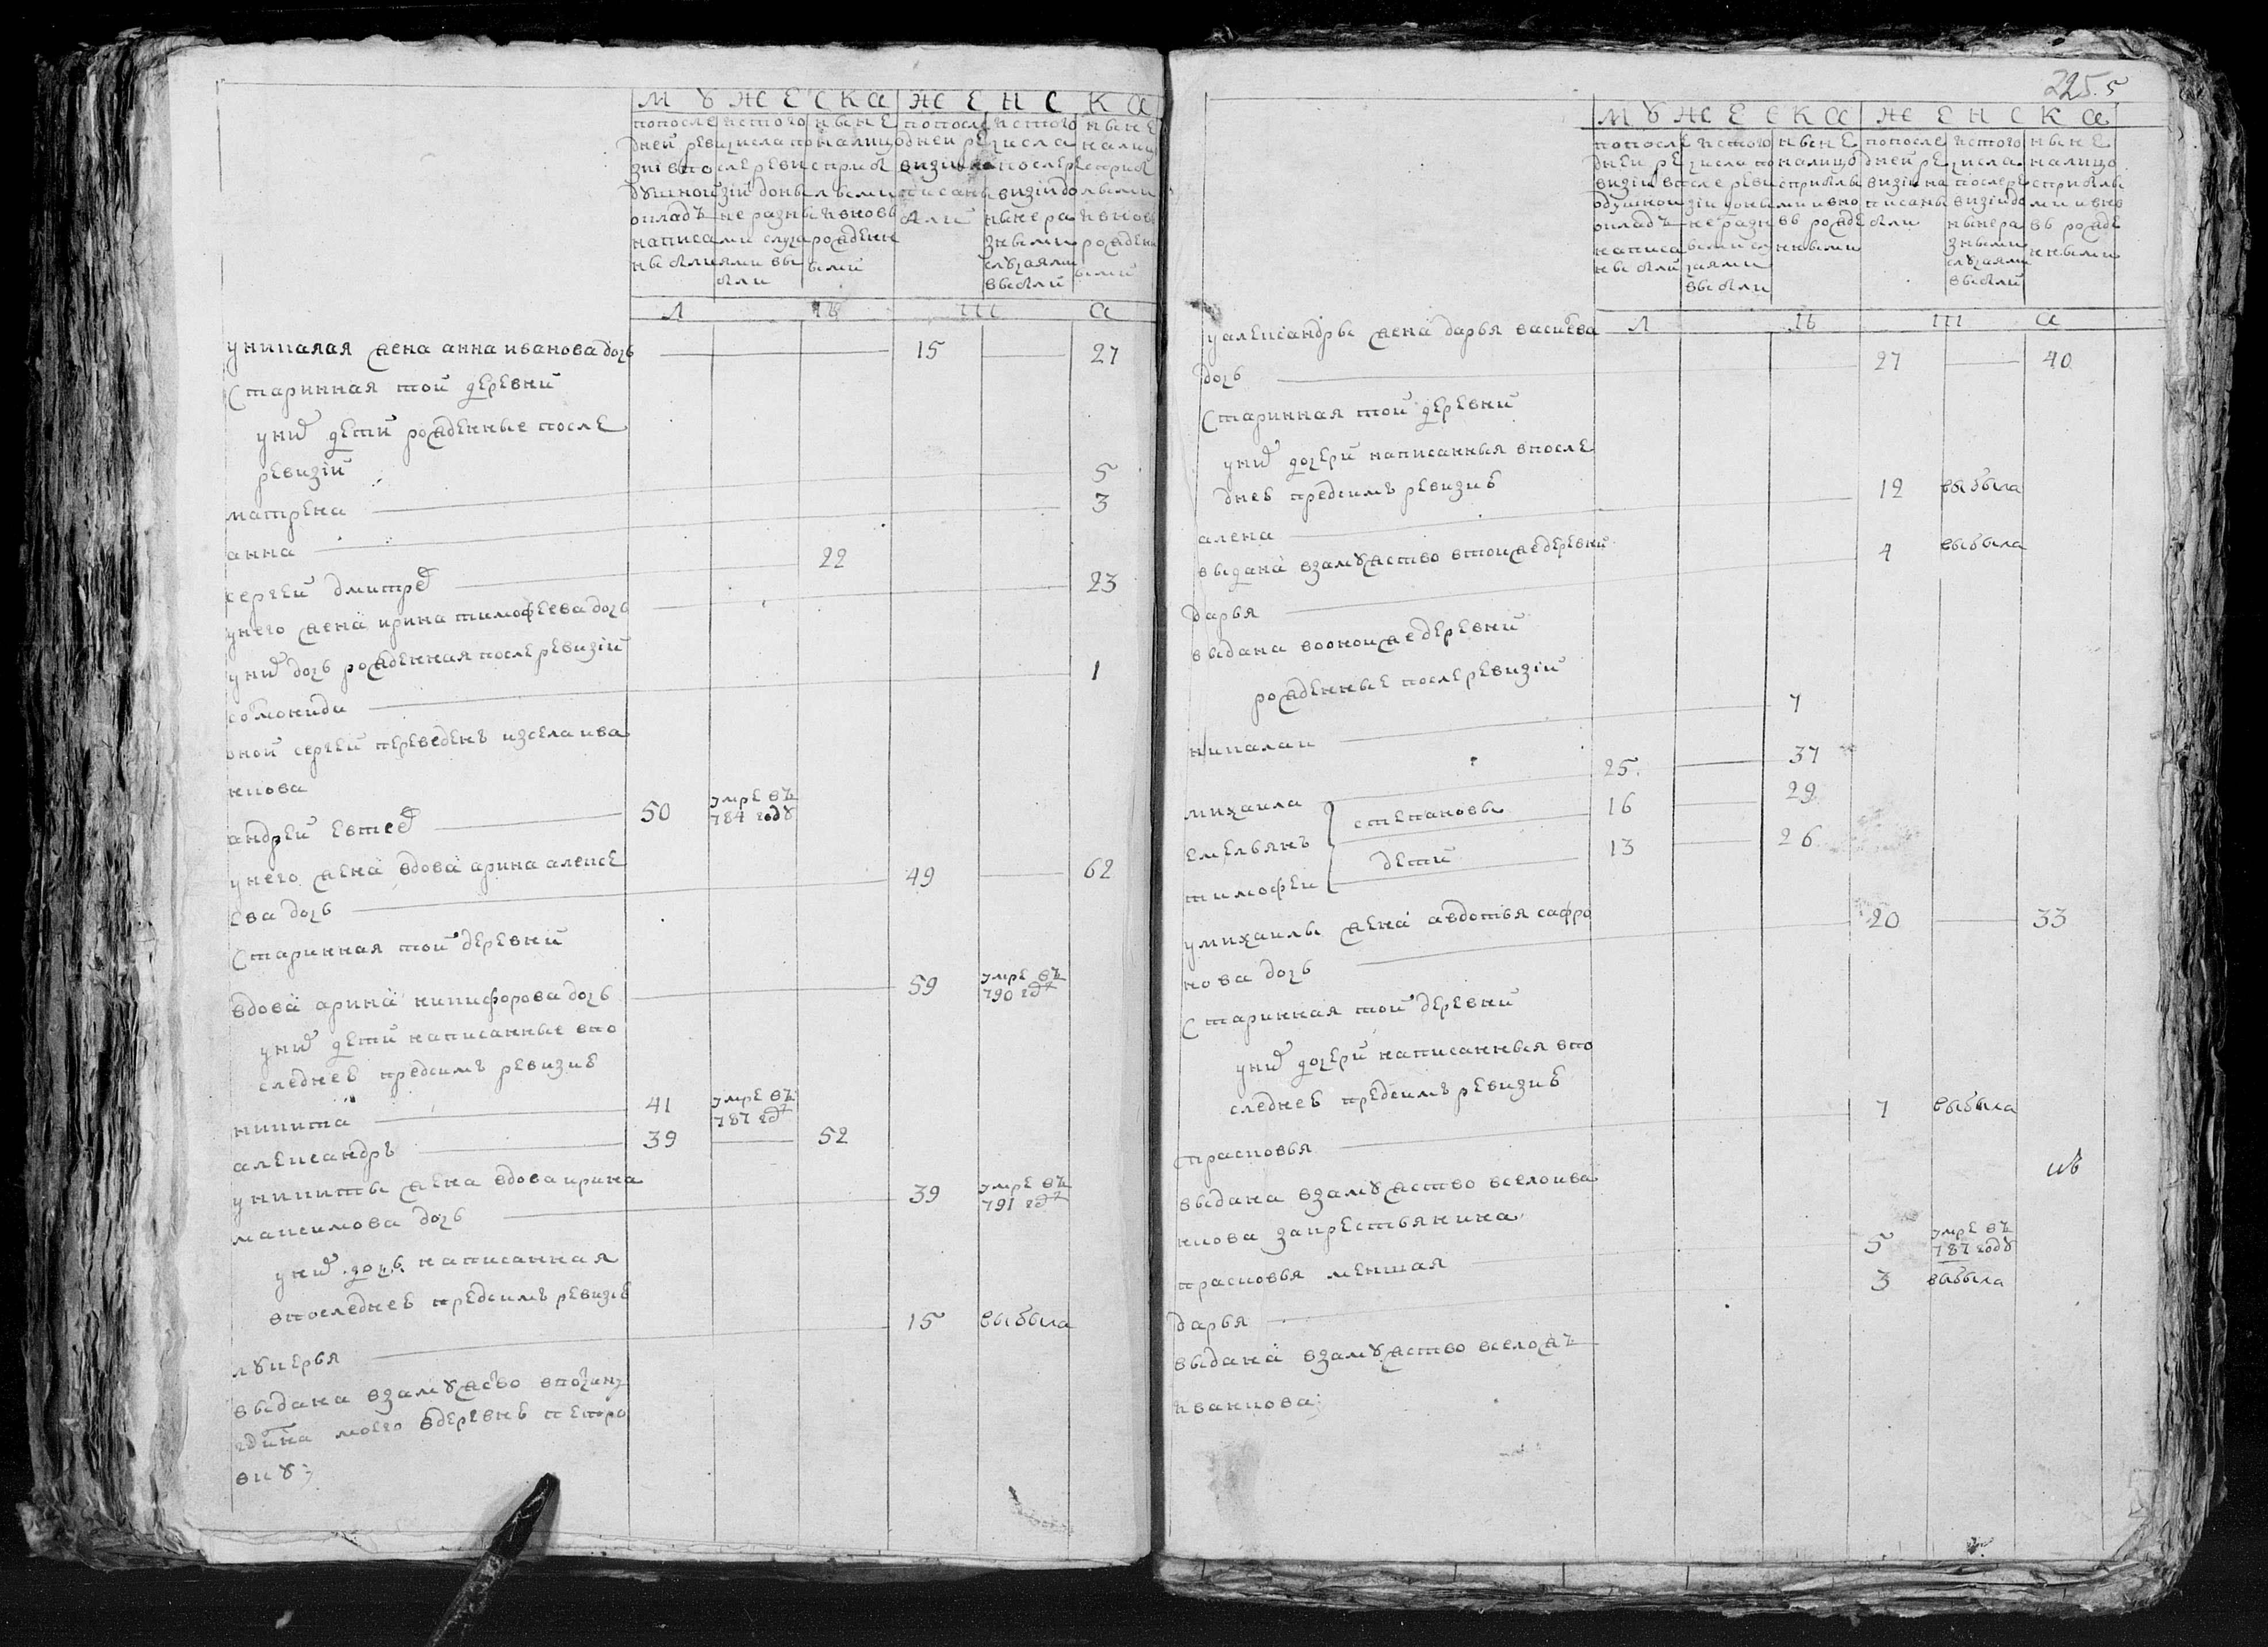 МУЖЕСКА ЖЕНСКА
попоследней ревизіи вподушной окладъ написаны были
истого числа после ревизіи доныне разными случаями выбыли
ныне налицо сприбылыми ивновь рожденными
попоследней ревизіи написаны были
истого числа после ревизіи доныне разными случаями выбыли
ныне налицо сприбылыми ивновь рожденными
Л Ѣ Т А
уникалая жена анна иванова дочь 15 27
старинная той деревни
унихъ дети рожденные после
ревизіи
матрена 5
анна 3
сергей дмитрев 22
унего жена ирина тимофеева дочь 23
унихъ дочь рожденная после ревизіи
соломонида 1
оной сергей переведенъ изсела ива
нкова
андрей евтеев 50 умре въ 784 году
унего жена вдова арина алексе
ева дочь 49 62
старинная той деревни
вдова арина никифорова дочь 59 умре въ 790 годъ
унихъ дети написанные впо
следнеѣ предсимъ ревизиѣ
никита 41 умре въ 787 годъ
александръ 39 52
уникиты жена вдова ирина
максимова дочь 39 умре въ 791 годъ
унихъ дочь написанная
впоследнеѣ предсимъ ревизиѣ
лукерья 15 выбыла
выдана взамужство
моего вдеревнѣ петро
вку
225. 5
МУЖЕСКА ЖЕНСКА
попоследней ревизіи вподушной окладъ написаны были
истого числа после ревизіи доныне разными случаями выбыли
ныне налицо сприбылыми ивновь рожденными
попоследней ревизіи написаны были
истого числа после ревизіи доныне разными случаями выбыли
ныне налицо сприбылыми ивновь рожденными
Л Ѣ Т А
уалександры жена дарья васильева
дочь 27 40
старинная той деревни
унихъ дочери написанныя впосле
днеѣ предсимъ ревизиѣ
алена 12 выбыла
выдана взамужство втойже деревни
дарья 4 выбыла
выдана воонойже деревни
рожденные после ревизіи
никалаи 7
михаила 25 37
емельянъ степановы 16 29
тимофеи дети 13 26
умихаилы жена авдотья сафро
нова дочь 20 33
старинная той деревни
унихъ дочери написанныя впо
следнеѣ предсимъ ревизиѣ
прасковья 7 выбыла
выдана взамужство всело ива
нкова закрестьянина
прасковья меншая 5 умре въ 787 году
дарья 3 выбыла
выдана взамужство вселожъ
иванкова